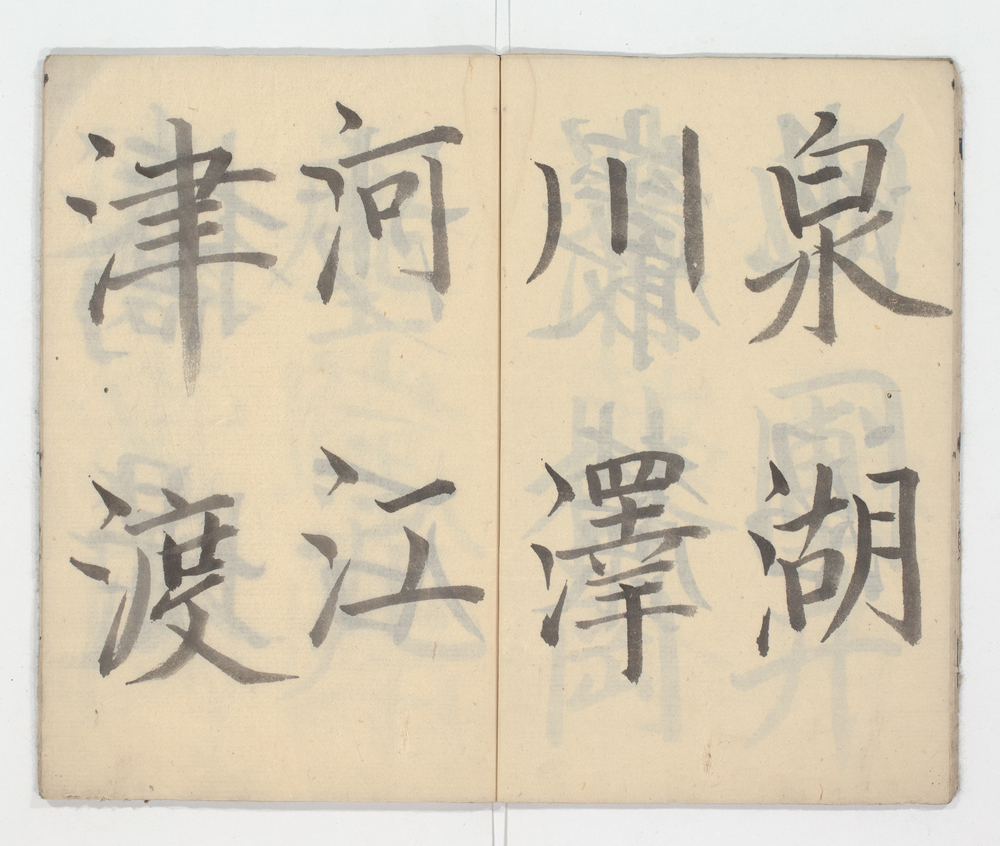 泉湖
川澤
河江
津渡